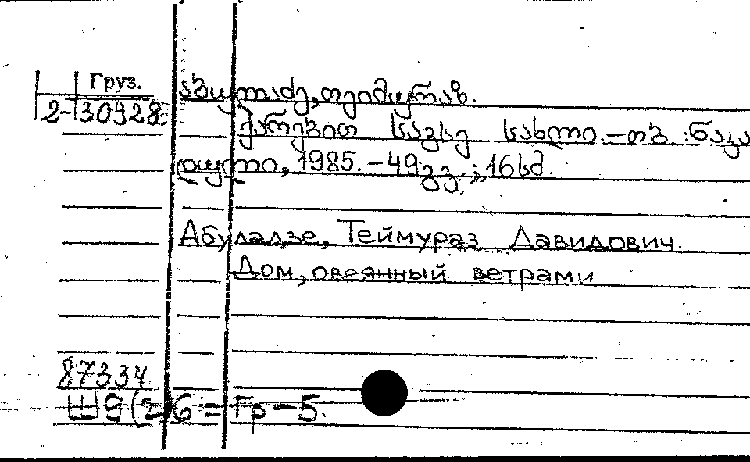 Груз.
2-30928
აბულაძე, თეიმურაზ.
ქარებით სავსე სახლი.-თბ.:ნაკა
დული, 1985.-49გვ.;16სმ.
Абуладзе, Теймураз Давидович.
Дом, овеянный ветрами
87334
Ш9(2)6=Гр-5.